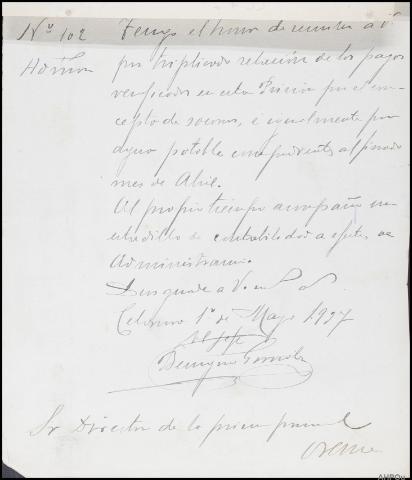 Nº 102 Tengo el honor de remitir a V.
Admon por triplicado relación de los pagos
verificados en esta Prisión por el con-
cepto de socorros, e igualmente por
agua potable correspondientes al pasado
mes de Abril.
Al propio tiempo acompaño un
estadillo de contabilidad a efectos de
Administración.
Dios guarde a V.
1º de Mayo 1937
El Jefe
Sr Director de la prision
Orense
AHPOu